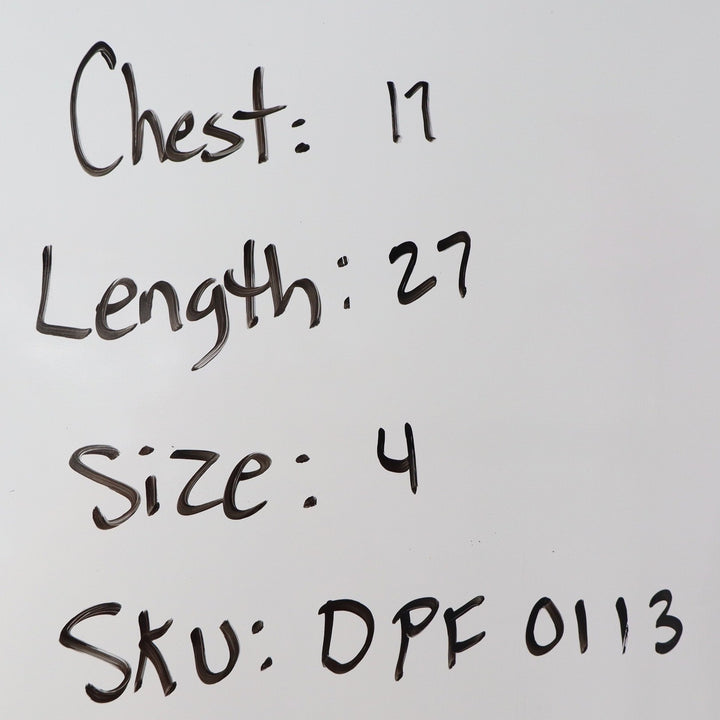 Chest: 17
Length: 27
Size: 4
SKU: DPF 0113